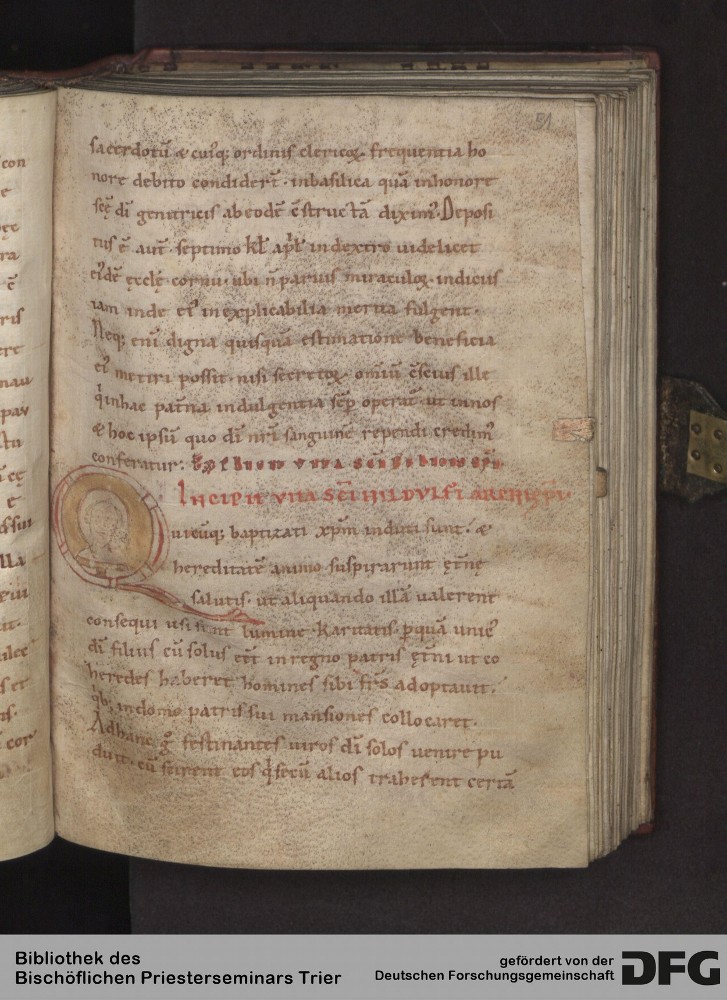 51
sacerdotū & cuiꝰq; ordinis clericoꝝ. frequentia ho
nore debito condidert̄. inbasilica quā inhonore
scę̄ dī genitricis abeodē ēstructā diximꝰ. Deposi
tus ē aut̄. septimo kl̄ apl̄ indextro uidelicet
eiꝰdē ęcclę̄ cornu. ubi n̄ paruis miraculoꝝ indiciis
iam inde eiꝰ inexplicabilia merita fulgent.
Neq; eni᷒ digna quisquā estimatione beneficia
eiꝰ metiri possit. nisi secretoꝝ omniū ēscius ille
qͥ inhac patr̄na indulgentia sēp operat᷒ ut innos
& hoc ipsū quo dī nr̄i sanguinē rependi credimꝰ
conferatur.
Incipit vita scī hildvlfi archiepī.
Quicūq; baptizati xpm̄ induti sunt. &
hereditatē animo suspirarunt ęt̄nę
salutis. ut aliquando illā ualerent
consequi usi sunt lumine karitatis. p̄quā uniꝰ
dī filius cū solus eēt in regno patris ęt̄ni ut co
heredes haberet homines sibi fr̄s adoptauit.
qͥb; indomo patris sui mansiones collocaret.
Adhanc gͦ festinantes uiros dī solos uenire pu
duit. cū scirent eos qͥ secū alios traherent certā
con
e
ra
ē
ris
ere
nau
pav
illa
cor
Bibliothek des
Bischöflichen Priesterseminars Trier
gefördert von der
Deutschen Forschungsgemeinschaft
DFG